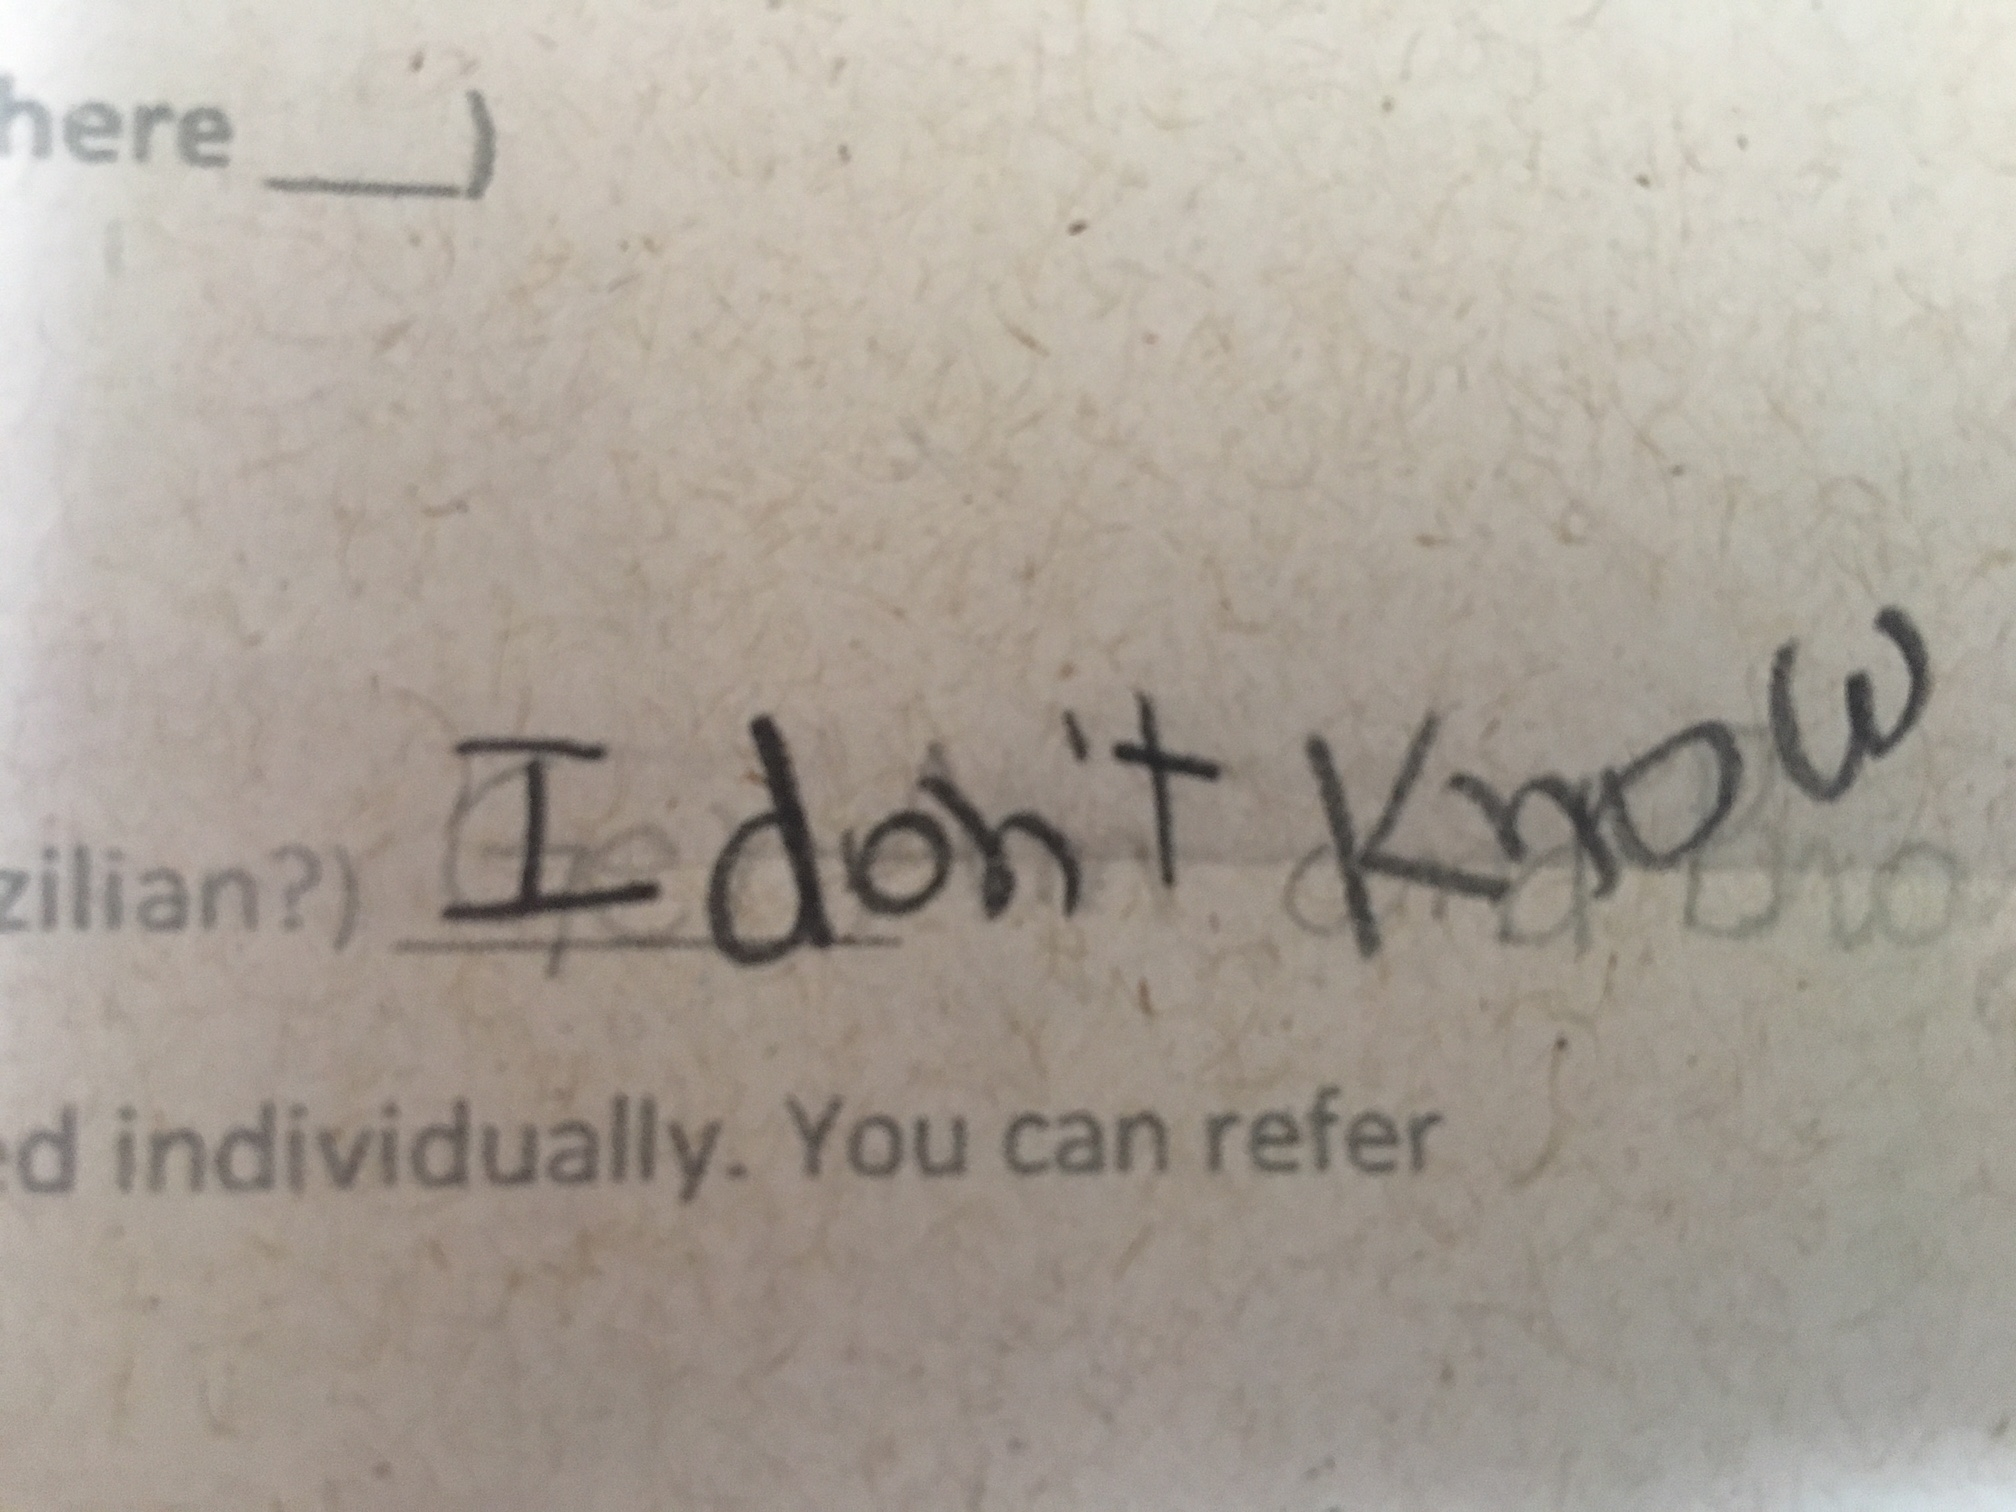 here ___)
zilian?) I don't know
ed individually. You can refer